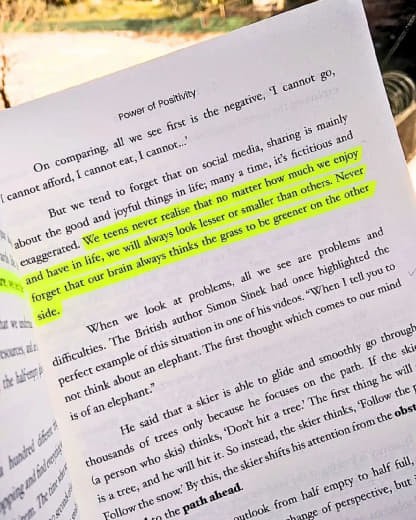 Power of Positivity
On comparing, all we see first is the negative, 'I cannot go,
I cannot afford, I cannot eat, I cannot...'
But we tend to forget that on social media, sharing is mainly
about the good and joyful things in life; many a time, it's fictitious and
exaggerated. We teens never realise that no matter how much we enjoy
and have in life, we will always look lesser or smaller than others. Never
forget that our brain always thinks the grass to be greener on the other
side.
When we look at problems, all we see are problems and
difficulties. The British author Simon Sinek had once highlighted the
perfect example of this situation in one of his videos. "When I tell you to
not think about an elephant. The first thought which comes to our mind
is of an elephant."
He said that a skier is able to glide and smoothly go through
thousands of trees only because he focuses on the path. If the skier
(a person who skis) thinks, 'Don't hit a tree.' The first thing he will
is a tree, and he will hit it. So instead, the skier thinks, 'Follow the
Follow the snow.' By this, the skier shifts his attention from the
to the path ahead.
outlook from half empty to half full,
change of perspective, but
the half empty
a hundred different